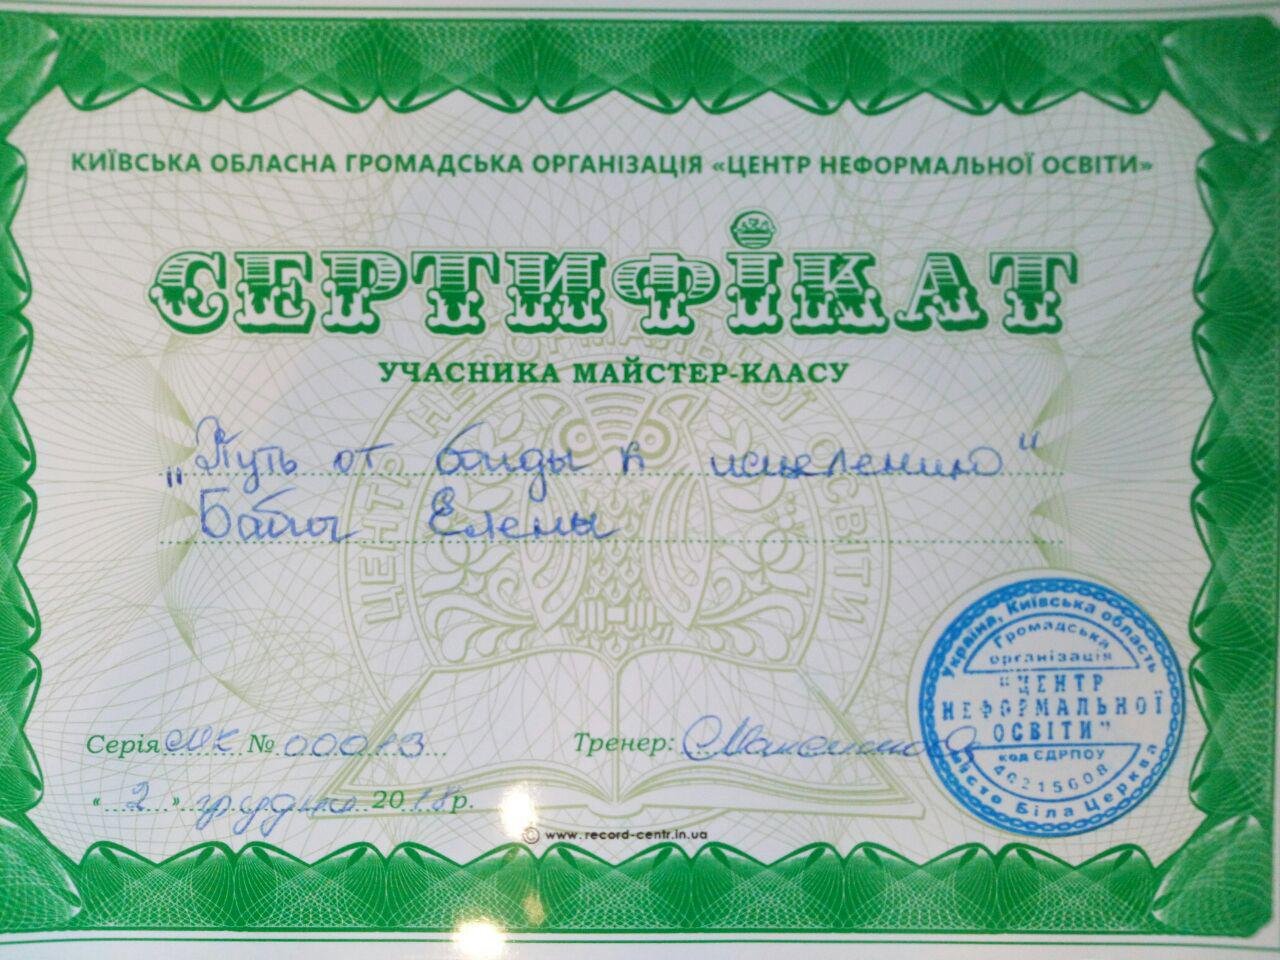 КИЇВСЬКА ОБЛАСНА ГРОМАДСЬКА ОРГАНІЗАЦІЯ «ЦЕНТР НЕФОРМАЛЬНОЇ ОСВІТИ»
СЕРТИФІКАТ
УЧАСНИКА МАЙСТЕР-КЛАСУ
"Путь от к исцелению"
Елены
ЦЕНТР НЕФОРМАЛЬНОЇ ОСВІТИ
Серія МК № 00013
Тренер:
«2» грудня 2018р.
© www.record-centr.in.ua
Україна, Київська область
Громадська
організація
"ЦЕНТР
НЕФОРМАЛЬНОЇ
ОСВІТИ"
код ЄДРПОУ
40215608
місто Біла Церква